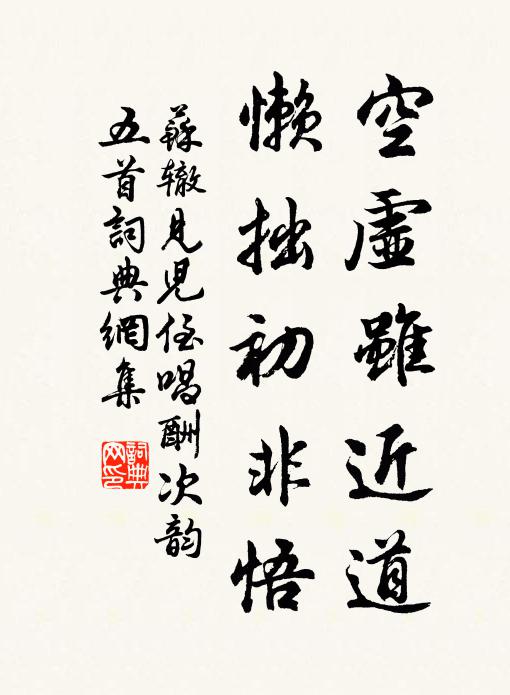 空虛雖近道
懶拙初非悟
蘇辙見兒侄唱酬次韵
五首詞典網集
詞典
网印